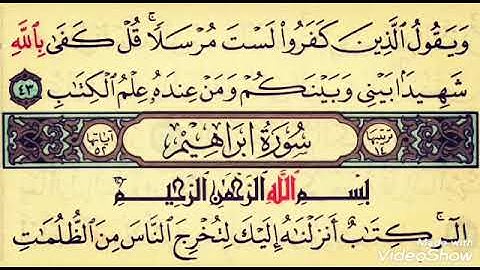 وَيَقُولُ ٱلَّذِينَ كَفَرُواْ لَسْتَ مُرْسَلًاۚ قُلْ كَفَىٰ بِٱللَّهِ
شَهِيدَۢا بَيْنِي وَبَيْنَكُمْ وَمَنْ عِندَهُۥ عِلْمُ ٱلْكِتَٰبِ ٤٣
ترتيبها ١٤ سُورَةُ إِبْرَاهِيمَ آياتها ٥٢
بِسْمِ ٱللَّهِ ٱلرَّحْمَٰنِ ٱلرَّحِيمِ
الٓرۚ كِتَٰبٌ أَنزَلْنَٰهُ إِلَيْكَ لِتُخْرِجَ ٱلنَّاسَ مِنَ ٱلظُّلُمَٰتِ
Made with
VideoShow